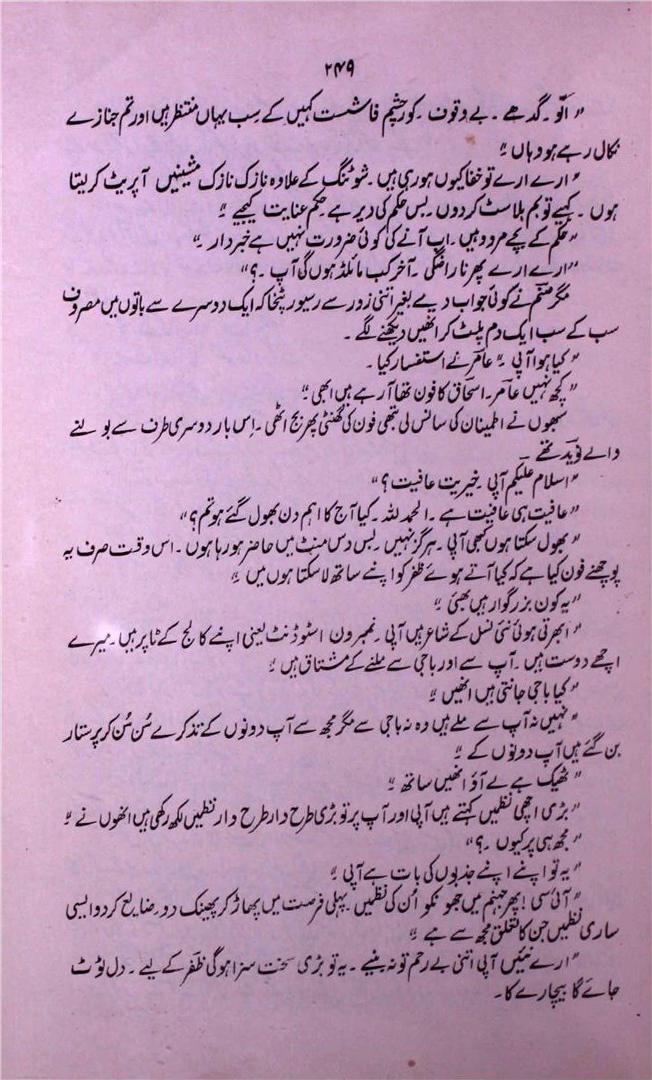 ۲۴۹
" اُلّو ۔ گدھے ۔ بے وقوف ۔ کورچشم فاشسٹ کہیں کے سب یہاں منتظر ہیں اور تم جنازے
نکال رہے ہو وہاں "
" ارے ارے تو خفا کیوں ہو رہی ہیں ۔ شوٹنگ کے علاوہ نازک نازک مشینیں آپریٹ کر لیتا
ہوں ۔ کہیے تو بم بلاسٹ کر دوں ۔ بس حکم کی دیر ہے ۔ حکم عنایت کیجیے "
" حکم کے بچے مردود ہیں ۔ اب آنے کی کوئی ضرورت نہیں ہے خبردار ۔"
" ارے ارے پھر ناراضگی ۔ آخر کب مائلڈ ہوں گی آپ ۔؟"
مگر صنم نے کوئی جواب دیے بغیر اتنی زور سے رسیور پٹخا کہ ایک دوسرے سے باتوں میں مصروف
سب کے سب ایک دم پلٹ کر انھیں دیکھنے لگے ۔
" کیا ہوا آپی ۔" عامر نے استفسار کیا ۔
" کچھ نہیں عامر ۔ اسحاق کا فون تھا آ رہے ہیں ابھی "
سبھوں نے اطمینان کی سانس لی تبھی فون کی گھنٹی پھر بج اٹھی ۔ اس بار دوسری طرف سے بولنے
والے نوید تھے
" اسلام علیکم آپی ۔ خیریت عافیت ؟"
" عافیت ہی عافیت ہے ۔ الحمد للہ ۔ کیا آج کا اہم دن بھول گئے ہو تم ؟"
" بھول سکتا ہوں کبھی آپی ۔ ہرگز نہیں ۔ بس دس منٹ میں حاضر ہو رہا ہوں ۔ اس وقت صرف یہ
پوچھنے فون کیا ہے کہ کیا آتے ہوئے ظفر کو اپنے ساتھ لا سکتا ہوں میں "
" یہ کون بزرگوار ہیں بھئی "
" ابھرتی ہوئی نئی نسل کے شاعر ہیں آپی ۔ نمبرون اسٹوڈنٹ یعنی اپنے کالج کے ٹاپر ہیں ۔ میرے
اچھے دوست ہیں ۔ آپ سے اور باجی سے ملنے کے مشتاق ہیں "
" کیا باجی جانتی ہیں انھیں "
" نہیں نہ آپ سے ملے ہیں وہ نہ باجی سے مگر مجھ سے آپ دونوں کے تذکرے سُن سُن کر پرستار
بن گئے ہیں آپ دونوں کے "
" ٹھیک ہے لے آؤ انھیں ساتھ "
" بڑی اچھی نظمیں کہتے ہیں آپی اور آپ پر تو بڑی طرح دار طرح دار نظمیں لکھ رکھی ہیں انھوں نے "
" مجھ ہی پر کیوں ۔؟"
" یہ تو اپنے اپنے جذبوں کی بات ہے آپی "
" آئی سی ! پھر جہنم میں جھونکو اُن کی نظمیں ۔ پہلی فرصت میں پھاڑ کر پھینک دو ۔ ضایع کر دو ایسی
ساری نظمیں جن کا تعلق مجھ سے ہے "
" ارے نئیں آپی اتنی بے رحم تو نہ بنیے ۔ یہ تو بڑی سخت سزا ہو گی ظفر کے لیے ۔ دل ٹوٹ
جائے گا بیچارے کا ۔